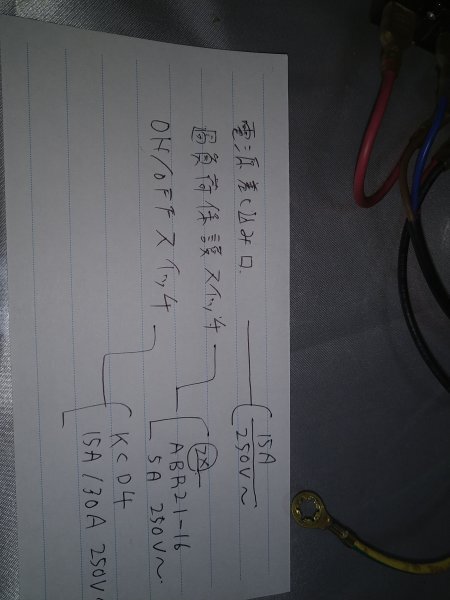 電源差し込み口
15A
250V~
過負荷保設スイッチ
ZX
ABR21-16
5A 250V~
ON/OFFスイッチ
KCD4
15A/30A 250V~